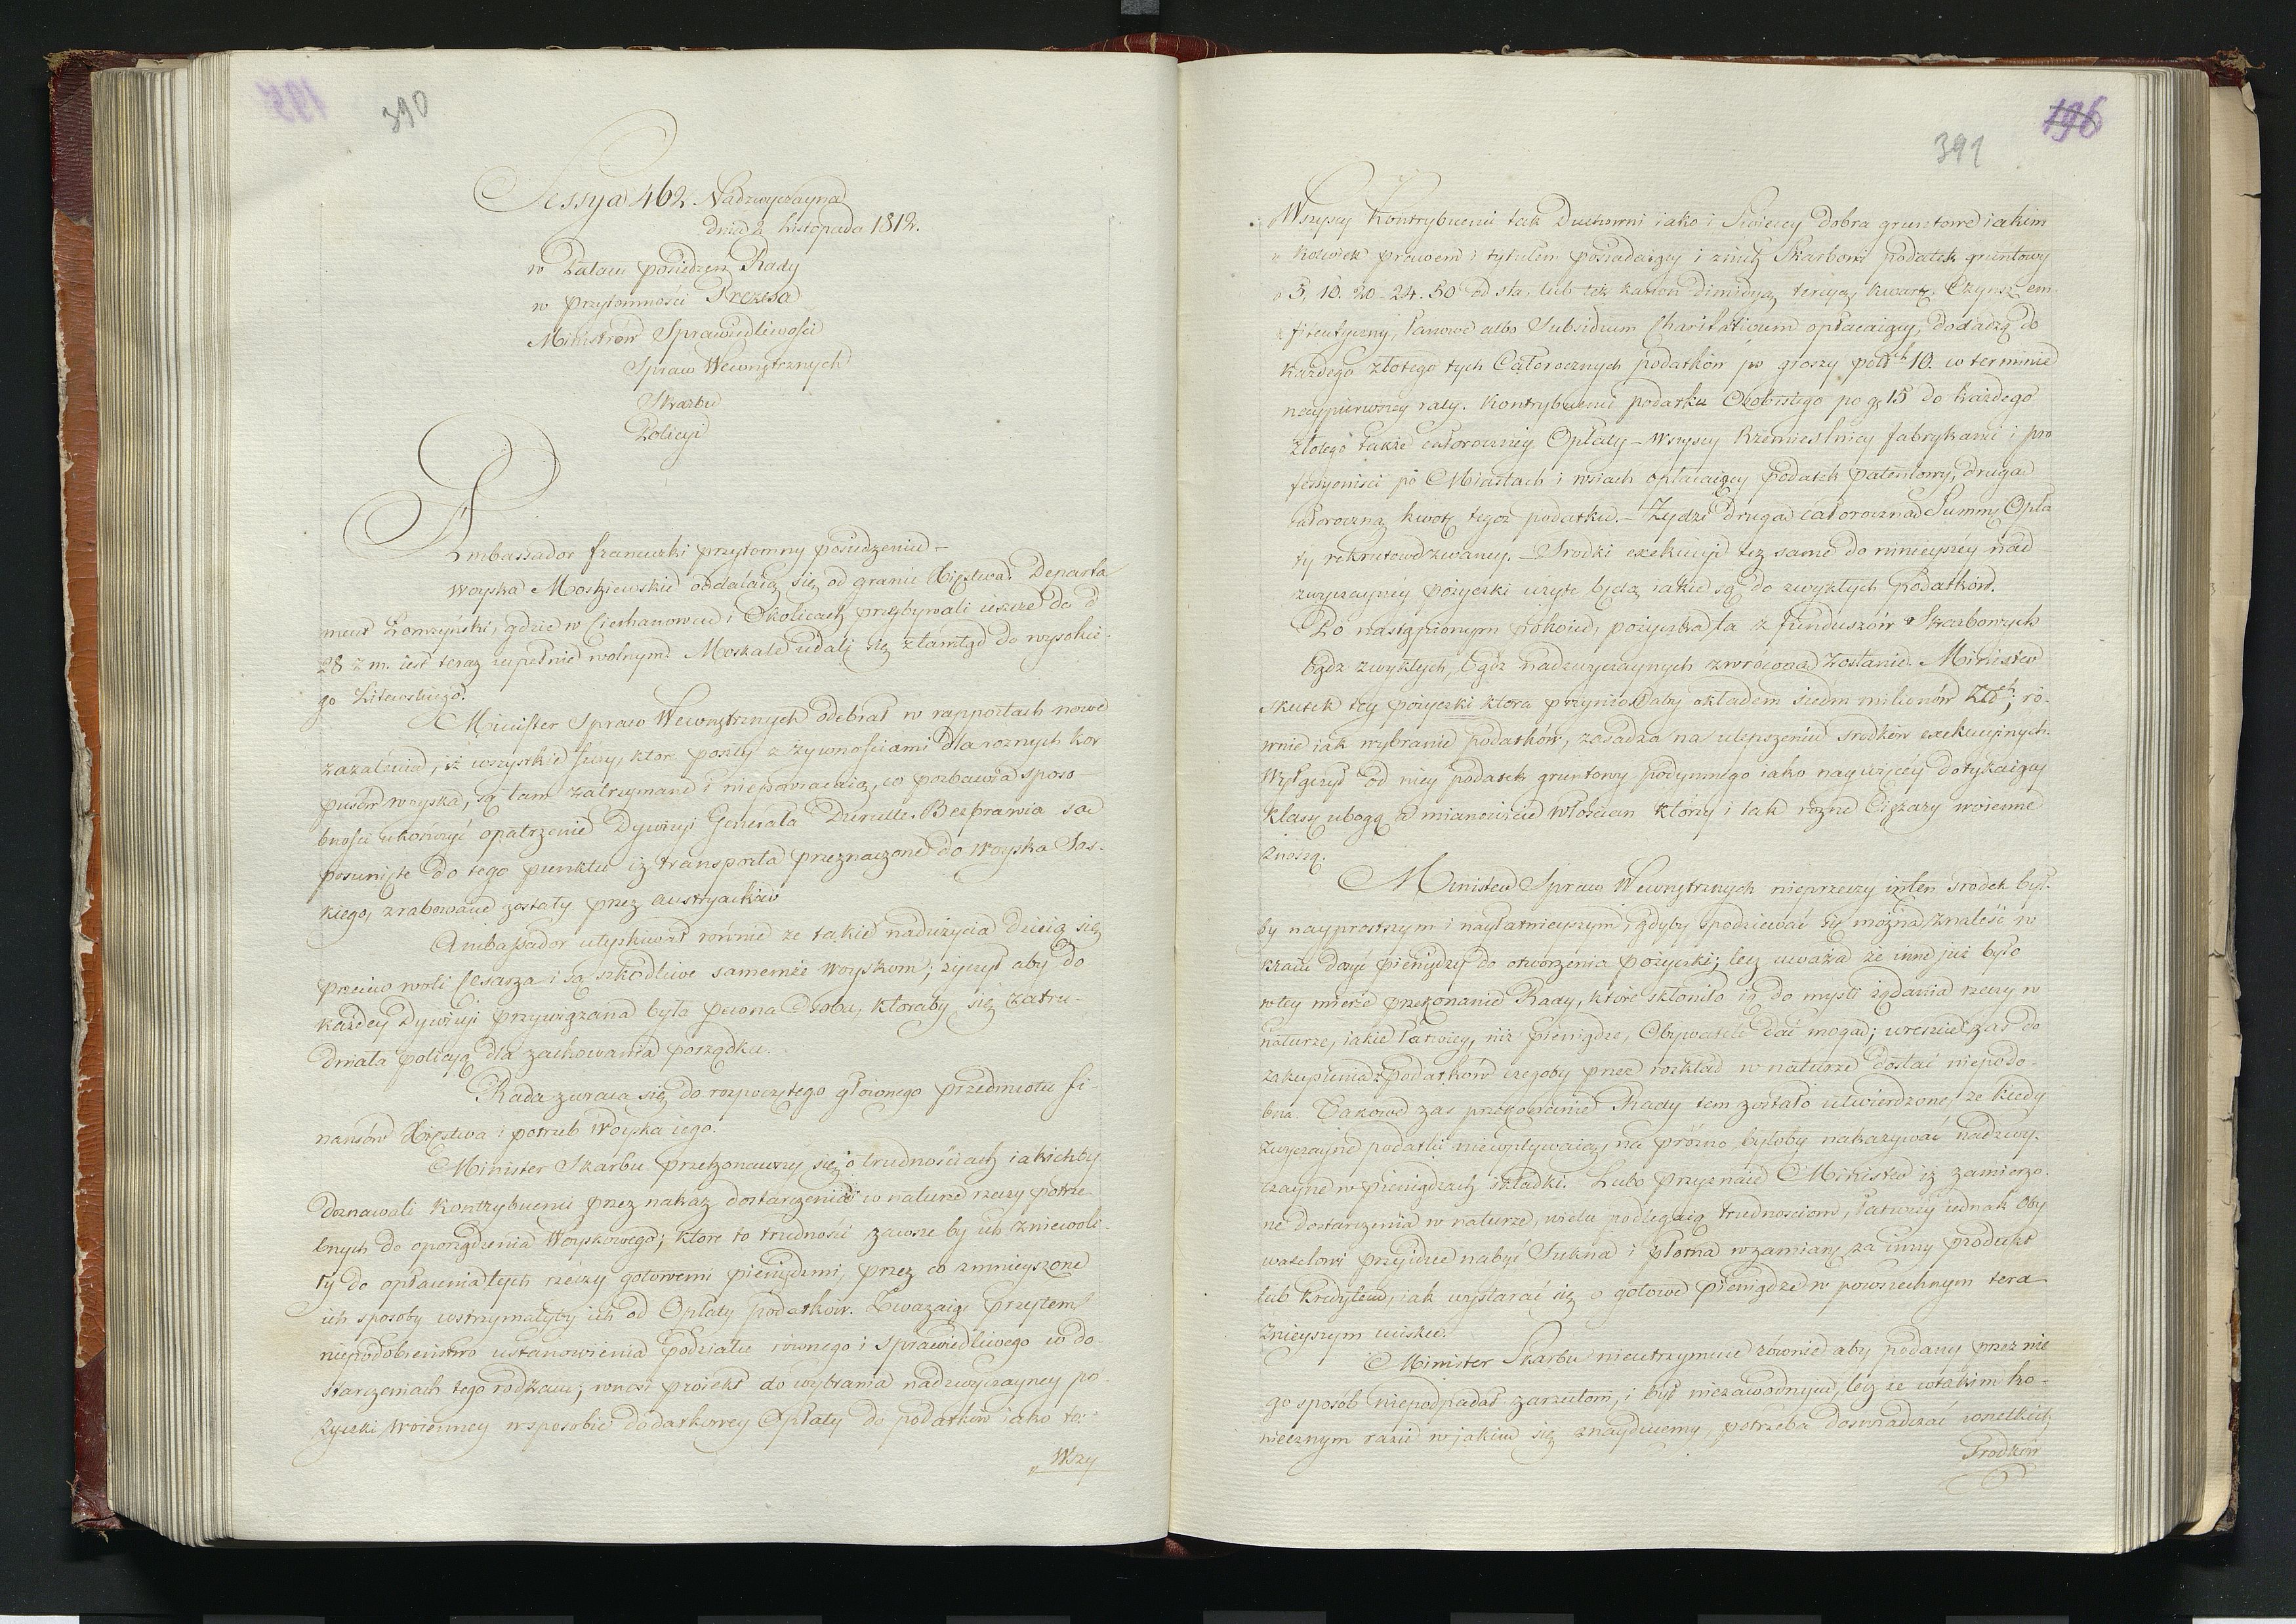 195
390
Sessya 462 Nadzwyczayna
dnia 2 Listopada 1812.
w Pałacu posiedzeń Rady
w przytomności Prezesa
Ministrów Sprawiedliwości
Spraw Wewnętrznych
Skarbu
Policyi
Ambassador francuzki przytomny posiedzeniu –
Woyska Moskiewskie oddalaią się od granic Xięstwa. Departa
ment Łomzyński, gdzie w Ciechanowcu i Okolicach przebywali ieszcze do d
28 z m. iest teraz zupełnie wolnym. Moskale udali się ztamtąd do wysokie-
go Litewskiego.
Minister Spraw Wewnętrznych odebrał w rapportach nowe
zażalenia, iż wszystkie fury, ktore poszły z żywnościami dla roznych kor
pusów woyska, są tam zatrzymane i niepowracaią, co pozbawia sposo-
bności ukończyć opatrzenie Dywizyi Generała Durutte. Bezprawia są
posunięte do tego punktu iż transporta przeznaczone do Woyska Sas-
kiego, zrabowane zostały przez Austryaków
Ambassador utyskiwał rownie ze takie nadużycia dzieią się
przeciw woli Cesarza i są szkodliwe samemże Woyskom; życzył aby do
każdey Dywizyi przywiązana była pewna Osoba, ktoraby się zatru-
dniała policyą dla zachowania porządku.
Rada zwraca się do rozpoczętego głównego przedmiotu fi-
nansów Xięstwa i potrzeb Woyska iego.
Minister Skarbu przekonawszy się o trudnościach iakichby
doznawali kontrybuenci przez nakaz dostarczenia w naturze rzeczy potrze
bnych do oporządzenia Woyskowego; ktore to trudności zawsze by ich zniewoli-
ły do opłacenia tych rzeczy gotowemi pieniędzmi, przez co zmnieyszone
ich sposoby wstrzymałyby ich od Opłaty podatków. Zważaiąc przytem
niepodobieństwo ustanowienia podziału równego i sprawiedliwego w do-
starczeniach tego rodzaiu; wnosi proiekt do wybrania nadzwyczayney po-
życzki woienney w sposobie dodatkowey Opłaty do podatków iako to:
„Wszy
196
391
Wszyscy Kontrybuenci tak Duchowni iako i Swieccy dobra gruntowe iakim
kolwiek prawem i tytułem posiadaiący i z nich Skarbowi podatek gruntowy
5, 10. 20 - 24. 50 od sta. lub też kanon dimidyą, tercyą, kwartę, Czynsz em-
fiteutyczny, Łanowe albo Subsidium Charitativum opłacaiący, dodadzą do
każdego złotego tych Całorocznych podatków po groszy polsk 10. w terminie
naypierwszey raty. Kontrybuenci podatku Osobistego po gr 15 do każdego
złotego także całoroczney Opłaty – Wszyscy Rzemieslnicy fabrykanci i pro
fessyonisci po Miastach i wsiach opłacaiący podatek patentowy, drugą
całoroczną kwotę tegoż podatku. – Żydzi drugą całoroczną Summę Opła
ty rekrutowe zwaney. – Srodki exekucyi też same do ninieyszey nad
zwyczayney pożyczki użyte będą iakie są do zwykłych Podatków.
Po nastąpionym pokoiu, pożyczka ta z funduszów Skarbowych
bądz zwykłych, bądz nadzwyczaynych zwrócona zostanie. Minister
skutek tey pożyczki ktora przyniosłaby okładem siedm milionów Złt; ró-
wnie iak wybranie podatków, zasadza na ulepszeniu srodków exekucyinych.
Wyłączył od niey podatek gruntowy podymnego iako naywięcey dotykaiący
klasę ubogą a mianowicie włościan ktorzy i tak rożne Ciężary woienne
znoszą.
Minister Spraw Wewnętrznych nieprzeczy iż ten środek był-
by nayprostszym i nayłatwieyszym, gdyby spodziewać się można znalesć w
kraiu dosyć pieniędzy do otworzenia pożyczki; lecz uważa że inne już było
w tey mierze przekonanie Rady, które skłoniło ią do myśli żądania rzeczy w
naturze, iakie łatwiey, niż pieniądze, Obywatele dać mogą; wreszcie zaś do
zakupienia z podatków czegoby przez rozkład w naturze dostać niepodo-
bna. Takowe zas przekonanie Rady tem zostało utwierdzone, że kiedy
zwyczayne podatki niewpływaią, na próżno byłoby nakazywać nadzwy-
czayne w pieniądzach składki. Lubo przyznaie Minister iż zamierzo-
ne dostarczenia w naturze, wielu podlegaią trudnosciom, łatwiey iednak Oby
watelowi przyidzie nabyć Sukna i płótna w zamianę za inny produkt
lub kredytem, iak wystarać się o gotowe pieniądze w powszechnym tera
znieyszym ucisku.
Minister Skarbu nieutrzymuie równie aby podany przez nie
go sposób niepodpadał zarzutom, i był niezawodnym, lecz ze w takim ko-
niecznym razie w jakim się znayduiemy, potrzeba doswiadczać wszelkich
Srodków